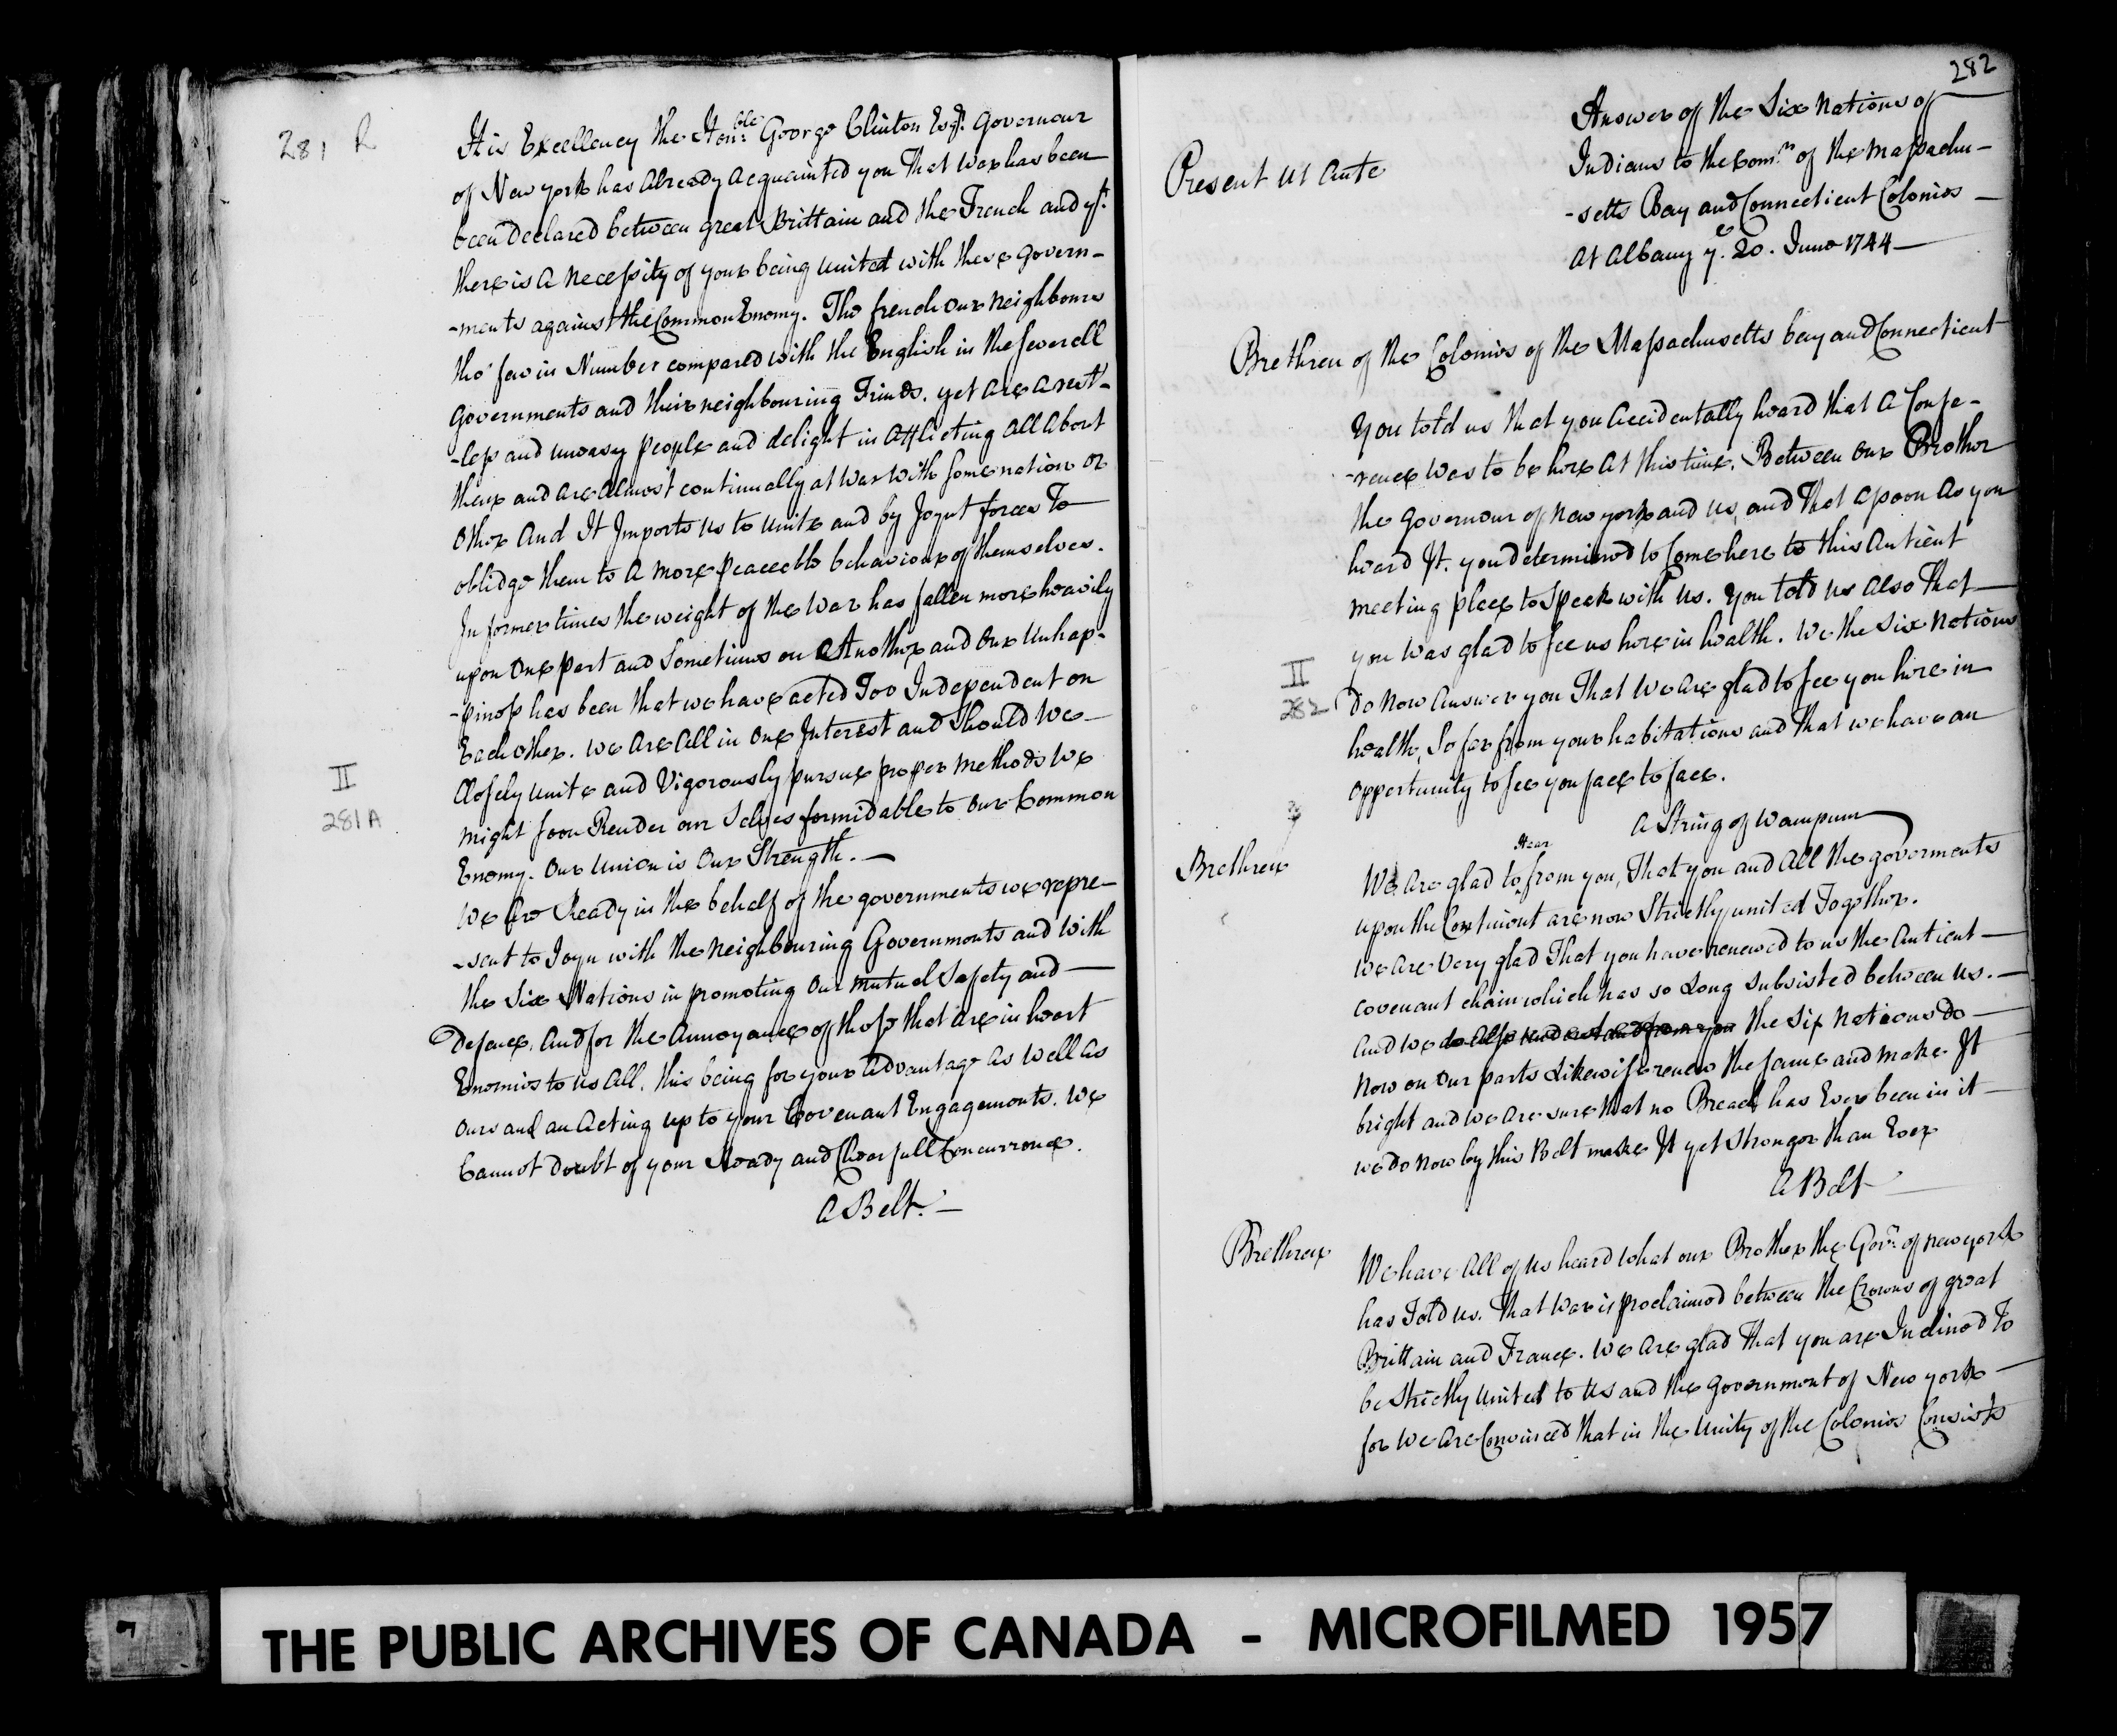 281 R
His Excellency the Hon:ble George Clinton Esqr. Governour
of New york has Already Acquainted you That war has been
been Declared between great Brittain and the French and yt.
there is a necessity of your being united with these Govern-
-ments against the Common Enemy. The french our neighbours
tho' few in Number compared with the English in the severall
Governments and their neighbouring Friends. yet are a rest-
-less and uneasy people and delight in afflicting all about
them and are almost continually at war with some nation or
other And It Imports us to unite and by Joynt forces To
oblidge them to a more peaceable behaviour of themselves.
In former times the weight of the war has fallen more heavily
upon one part and Sometimes on Another and our unhap-
-piness has been that we have acted Too Independent on
Each other. we are all in one Interest and Should we
Closely unite and Vigorously pursue proper methods we
might soon Render our Selves formidable to our Common
Enemy. Our union is Our Strength. —
II
281A
we are Ready in the behalf of the governments we repre-
-sent to Joyn with the neighbouring Governments and with
the Six Nations in promoting our mutual Safety and
Defence. And for the Annoyance of those that are in heart
Enemies to us all. this being for your advantage as well as
ours and an acting up to your Covenant Engagements. we
Cannot doubt of your Ready and Chearfull Concurrence.
A Belt. —
282
Answer of the Six nations of
Indians to the Comrs. of the Massachu-
-setts Bay and Connecticut Colonies
At Albany ye. 20. June 1744
Present ut ante
Brethren of the Colonies of the Massachusetts bay and Connecticut
You told us that you accidentally heard that a Confe-
-rence was to be here at this time. Between our Brother
the Governour of new york and us, and that assoon as you
heard It. you determined to Come here to this Antient
meeting place to Speak with us. You told us also That
you was glad to see us here in health. We the Six Nations
II
282
do now answer you That we are glad to see you here in
health, So far from your habitations and that we have an
opportunity to see you face to face.
A String of wampum
Brethren
We are glad to Hear from you, That you and all the goverments
upon the Continent are now Strictly united Together.
we are very glad That you have renewed to us the Antient
covenant chain which has so Long Subsisted between us.
And we do also the Six Nations do
now on our parts Likewise renew the same and make It
bright and we are sure that no Breach has Ever been in it
we do now by this Belt make It yet Stronger than Ever
A Belt
Brethren
We have all of us heard what our Brother the Govr. of new york
has Told us. That war is proclaimed between the Crowns of great
Brittain and France. we are glad That you are Inclined To
be Strictly united to us and the Government of New york
for we are Convinced that in the unity of the Colonies Consists
THE PUBLIC ARCHIVES OF CANADA - MICROFILMED 1957